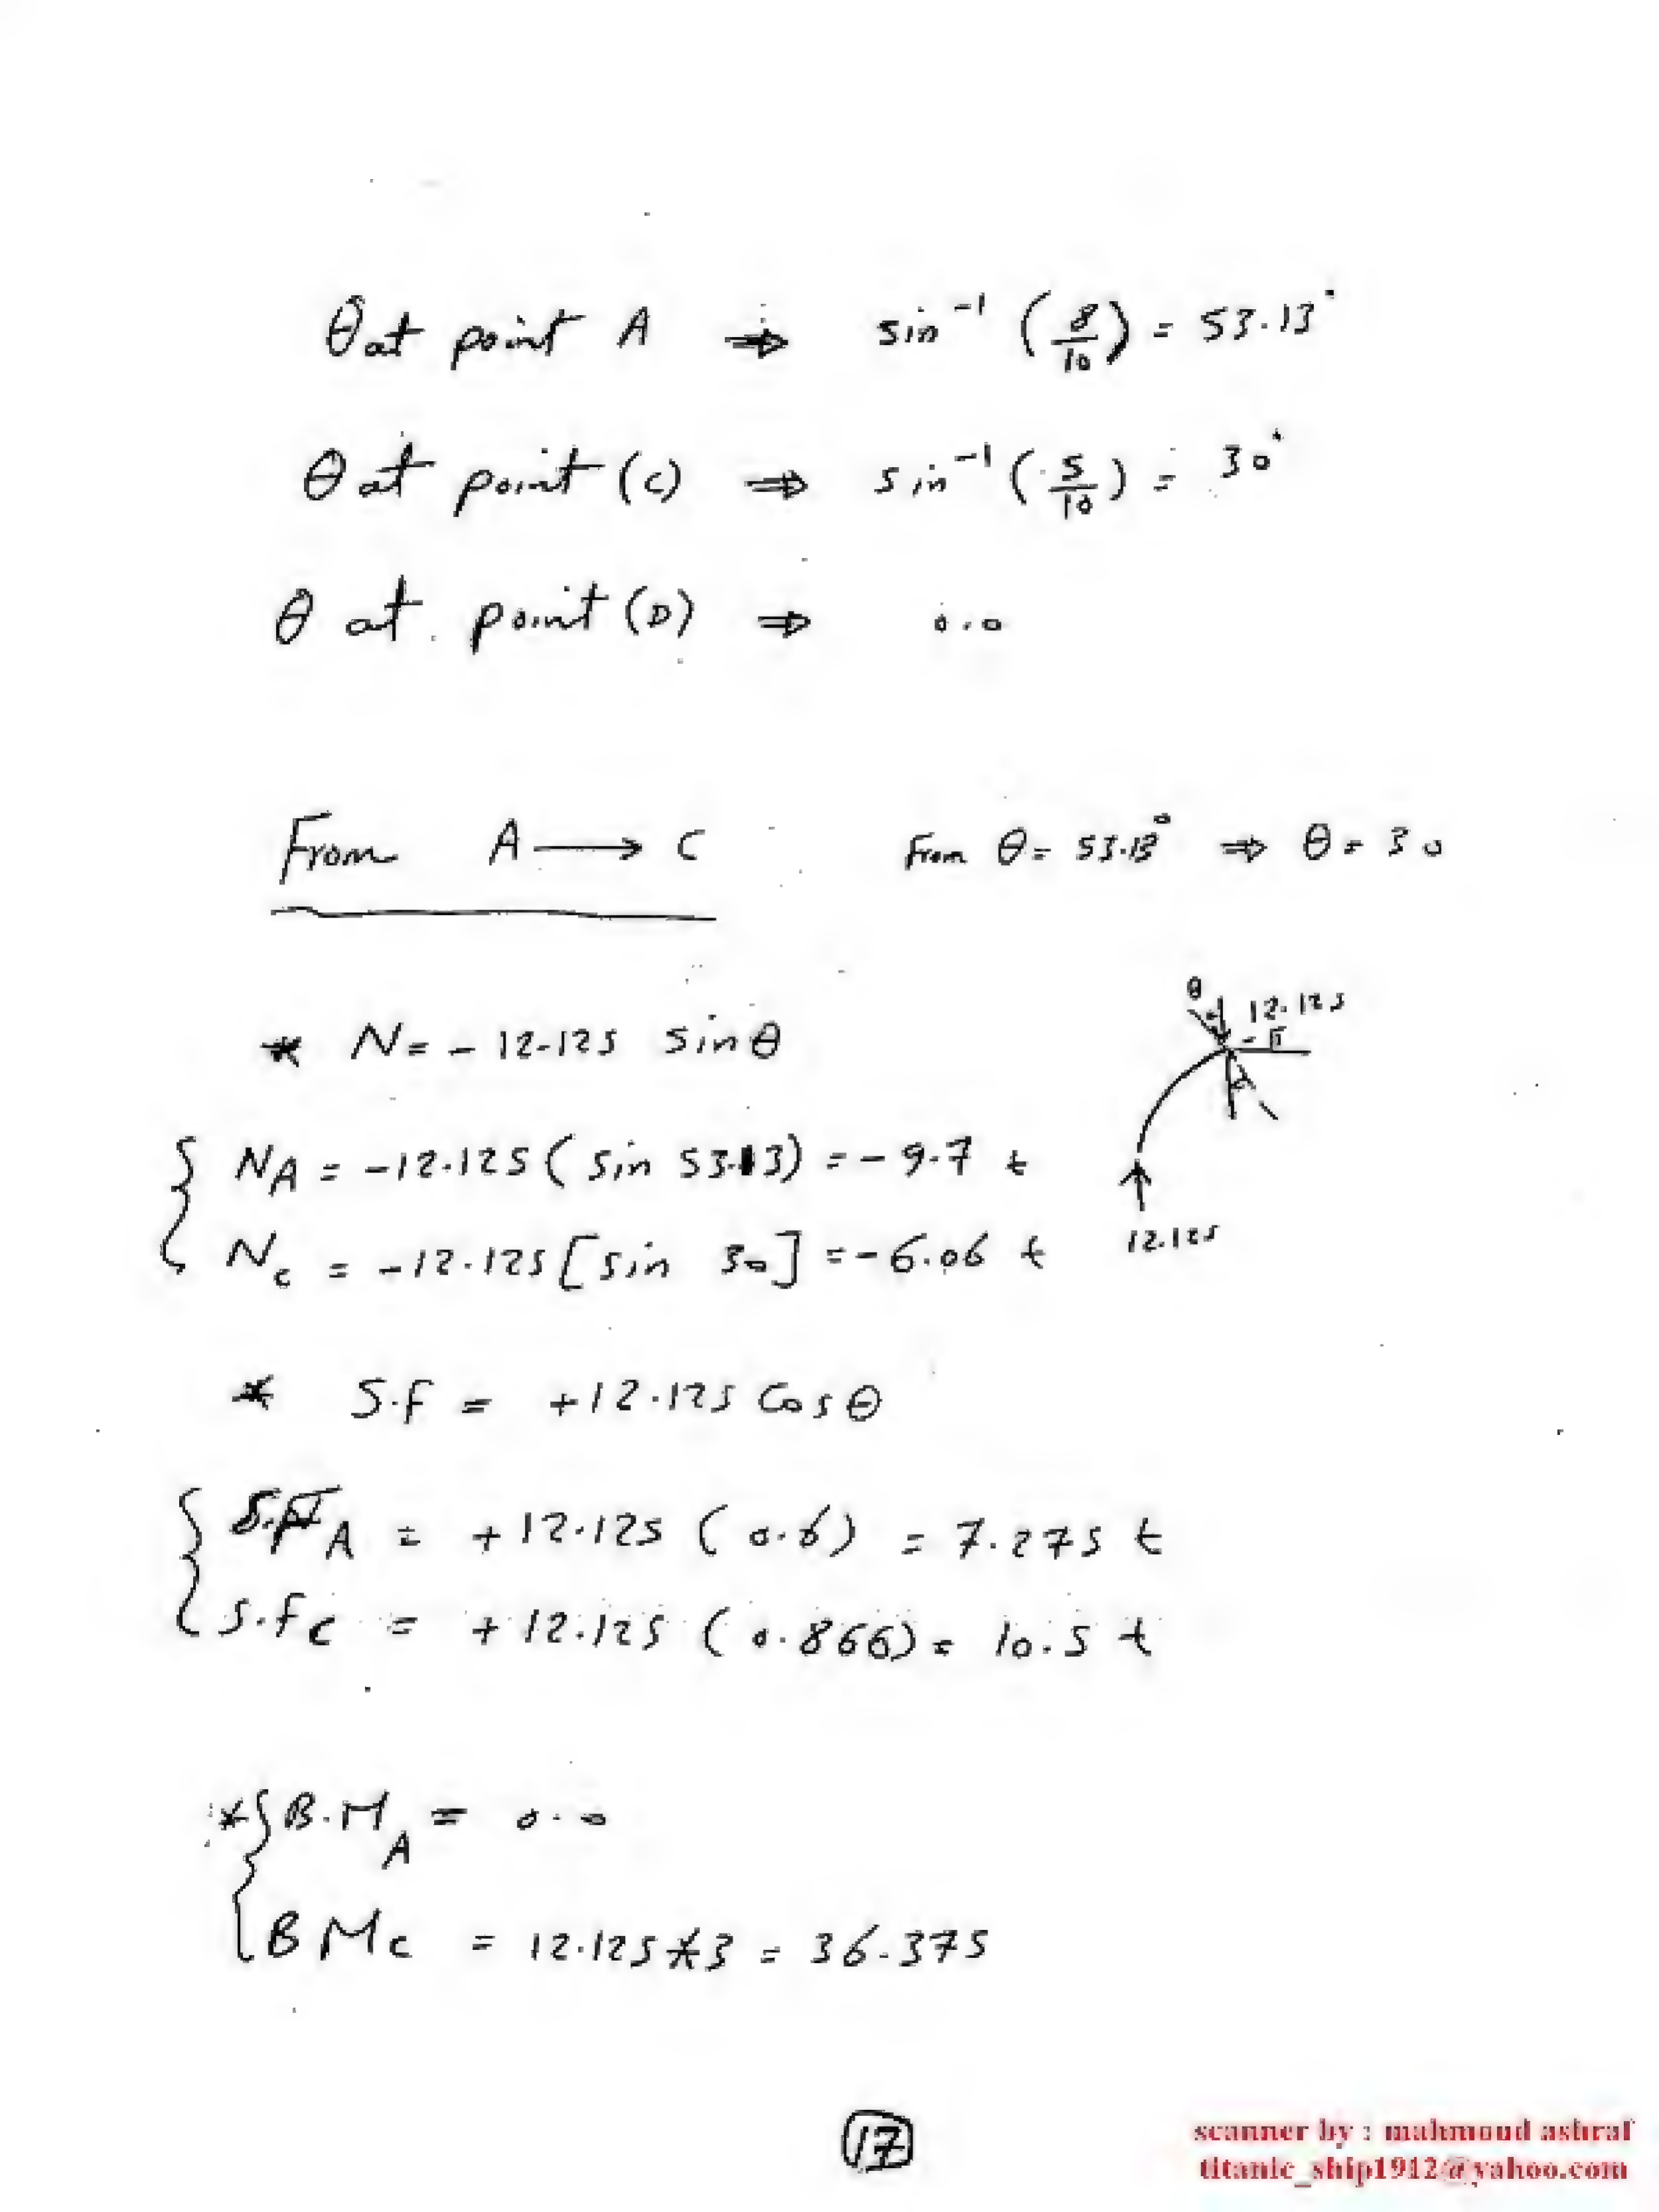 θ at point A ⇒ sin⁻¹ (8/10) = 53.13°
θ at point (C) ⇒ sin⁻¹ (5/10) = 30°
θ at point (D) ⇒ 0.0
From A ⟶ C From θ = 53.13° ⇒ θ = 30
* N = - 12.125 sin θ
θ
12.125
{ N_A = -12.125 ( sin 53.13) = - 9.7 t
N_c = -12.125 [sin 30] = - 6.06 t
12.125
* S.F = +12.125 Cos θ
{ S.F_A = +12.125 ( 0.6) = 7.275 t
S.F_C = +12.125 ( 0.866) = 10.5 t
* { B.M_A = 0.0
B M_C = 12.125*3 = 36.375
17
scanner by : mahmoud ashraf
titanic_ship1912@yahoo.com